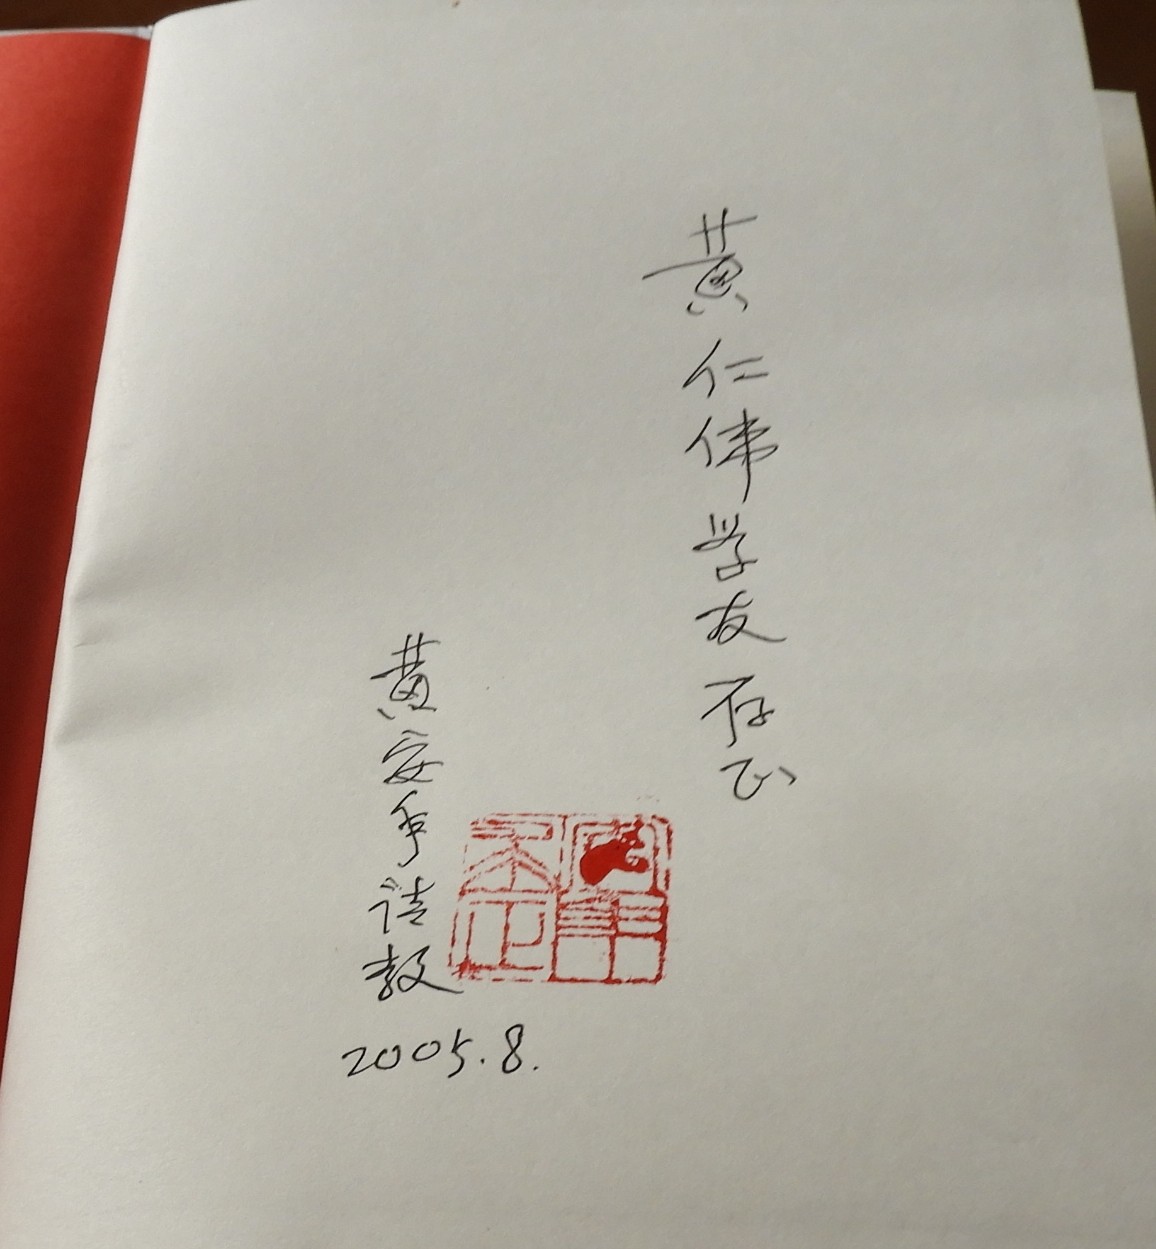 黄仁伟学友存正
黄安年请教
2005.8.